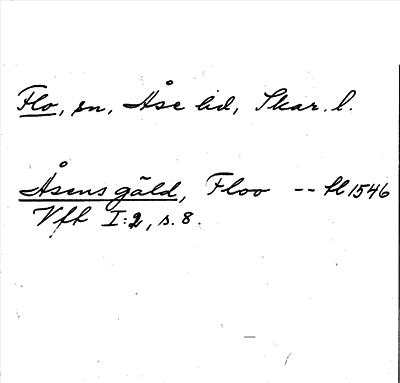 Flo, sn, Åse hd, Skar. l.
Åsens gäld, Floo -- Sl 1546
Vfh I:2, s. 8.